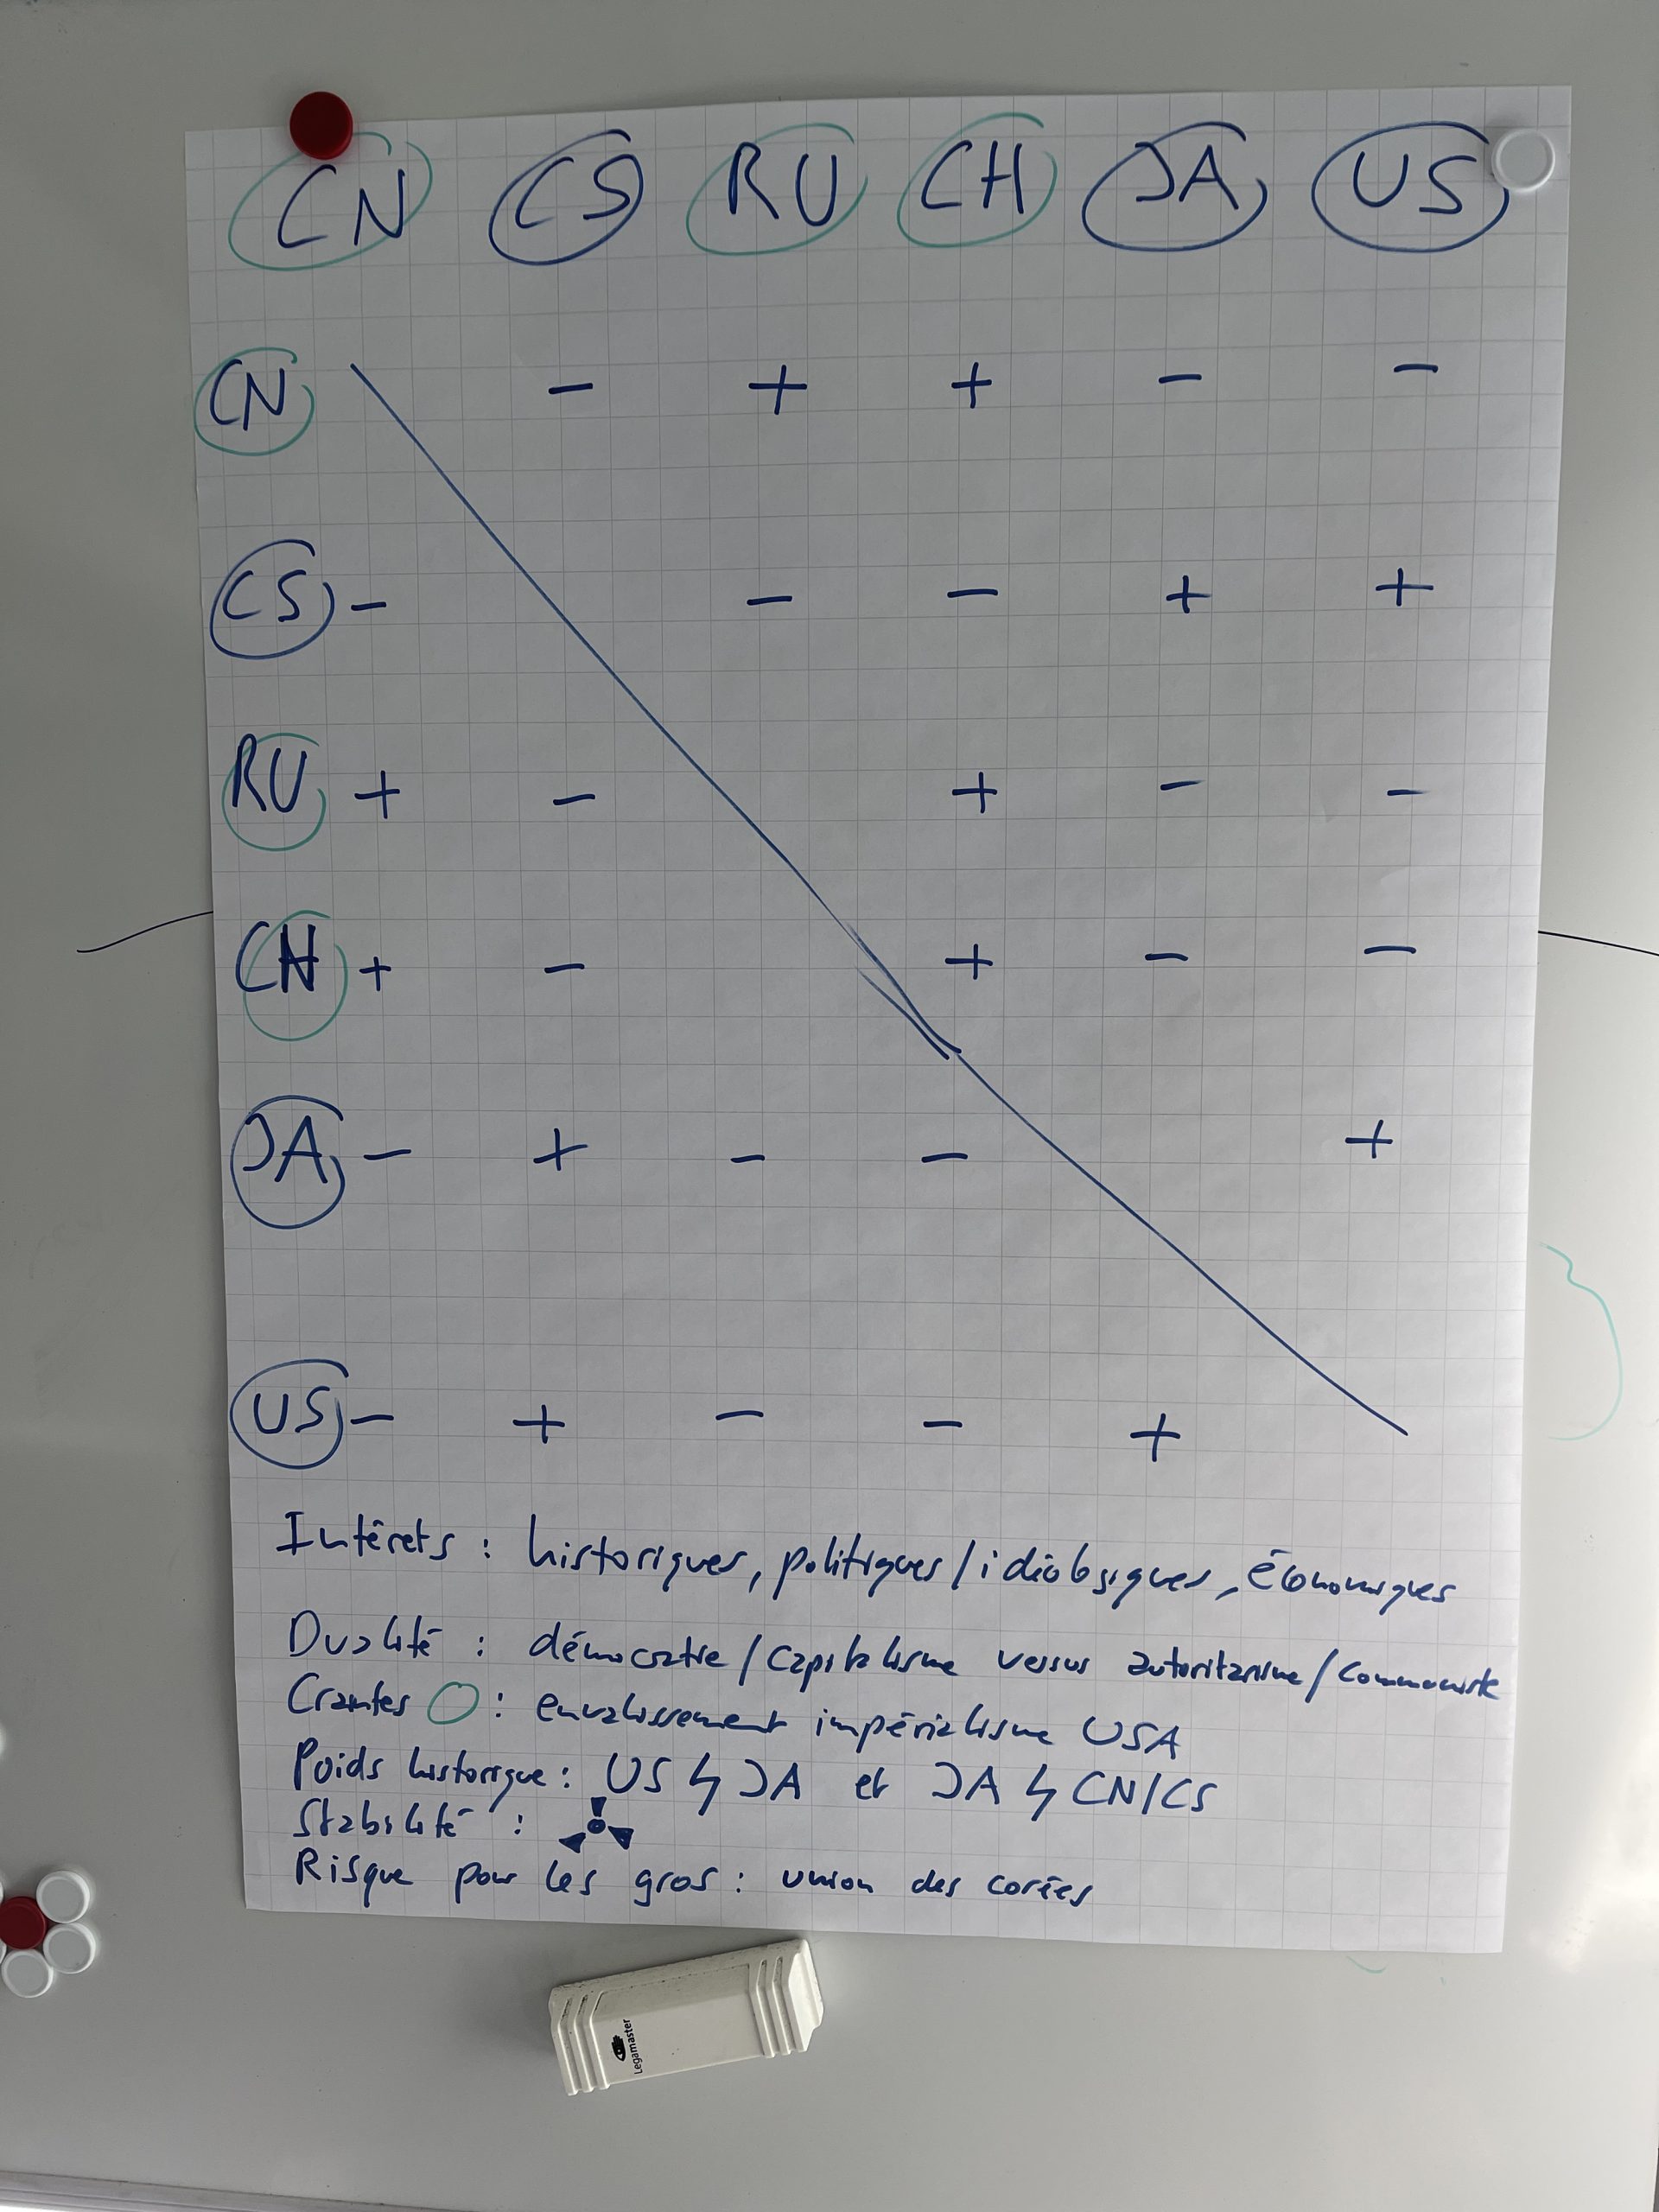 CN CS RU CH JA US
CN - + + - -
CS - - - + +
RU + - + - -
CH + - + - -
JA - + - - +
US - + - - +
Intérets : historiques, politiques/idéologiques, économiques
Dualité : démocratie/capitalisme versus autoritarisme/communiste
Craintes : envalissement impérialisme USA
Poids historique : US ϟ JA et JA ϟ CN/CS
Stabilité :
Risque pour les gros : union des corées
Legamaster